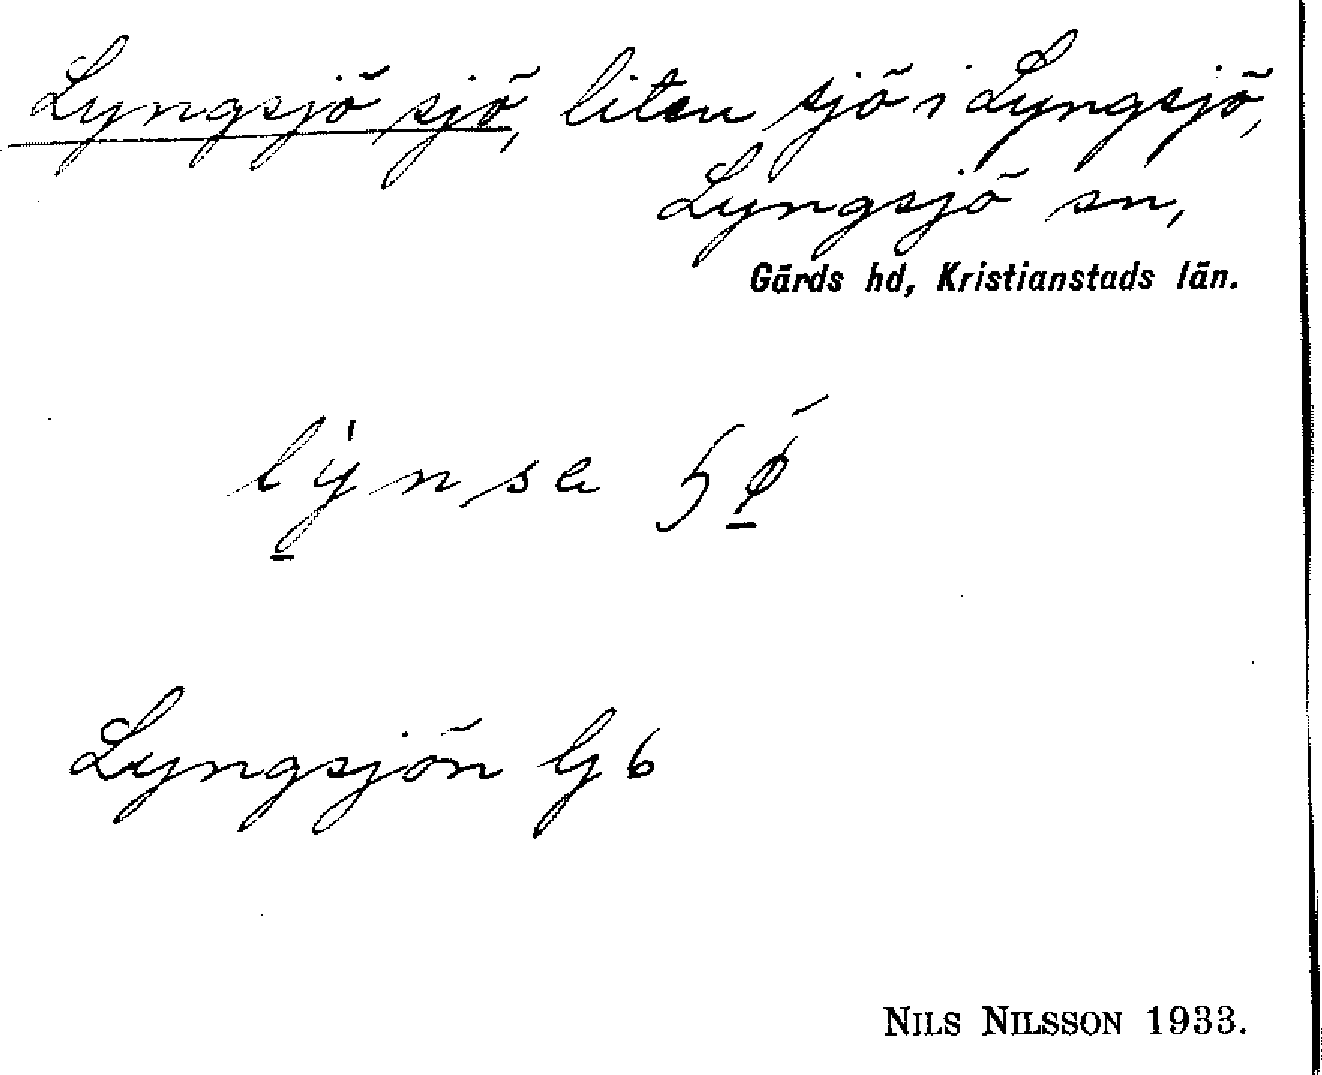 Lyngsjö sjö, liten sjö i Lyngsjö,
Lyngsjö sn,
Gärds hd, Kristianstads län.
Lyngsjön G6
NILS NILSSON 1933.